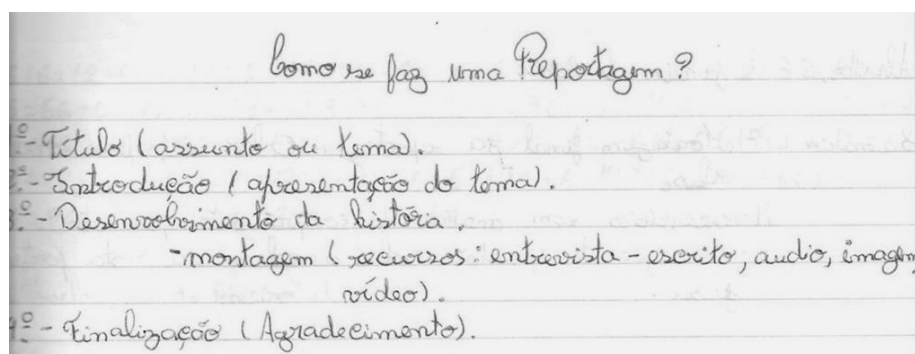 Como se faz uma Reportagem?
1º- Título (assunto ou tema).
2º- Introdução (apresentação do tema).
3º- Desenvolvimento da história.
- montagem (recursos: entrevista - escrito, audio, imagem,
vídeo).
4º- Finalização (Agradecimento).